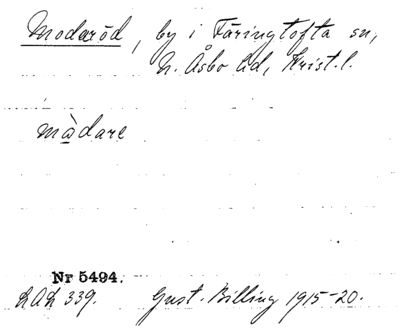 Modaröd, by i Färingtofta sn,
N. Åsbo hd, Krist. l.
màdare
Nr 5494.
LAL 339. Gust. Billing 1915-20.